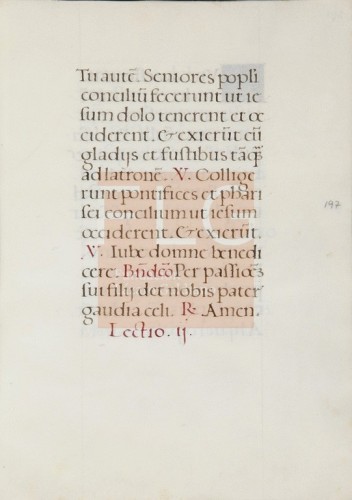 Tu autē. Seniores popli
conciliū fecerunt ut ie
sum dolo tenerent et oc
ciderent. & exierūt cū
gladijs et fustibus tāq̃
ad latronē. V. Collige
runt pontifices et phari
sei concilium ut iesum
occiderent. & exierūt.
V. Iube domne benedi
cere. Bñdcō Per passioēz
sui filij det nobis pater
gaudia celi. R. Amen.
Lectio. ij.
197
TLC